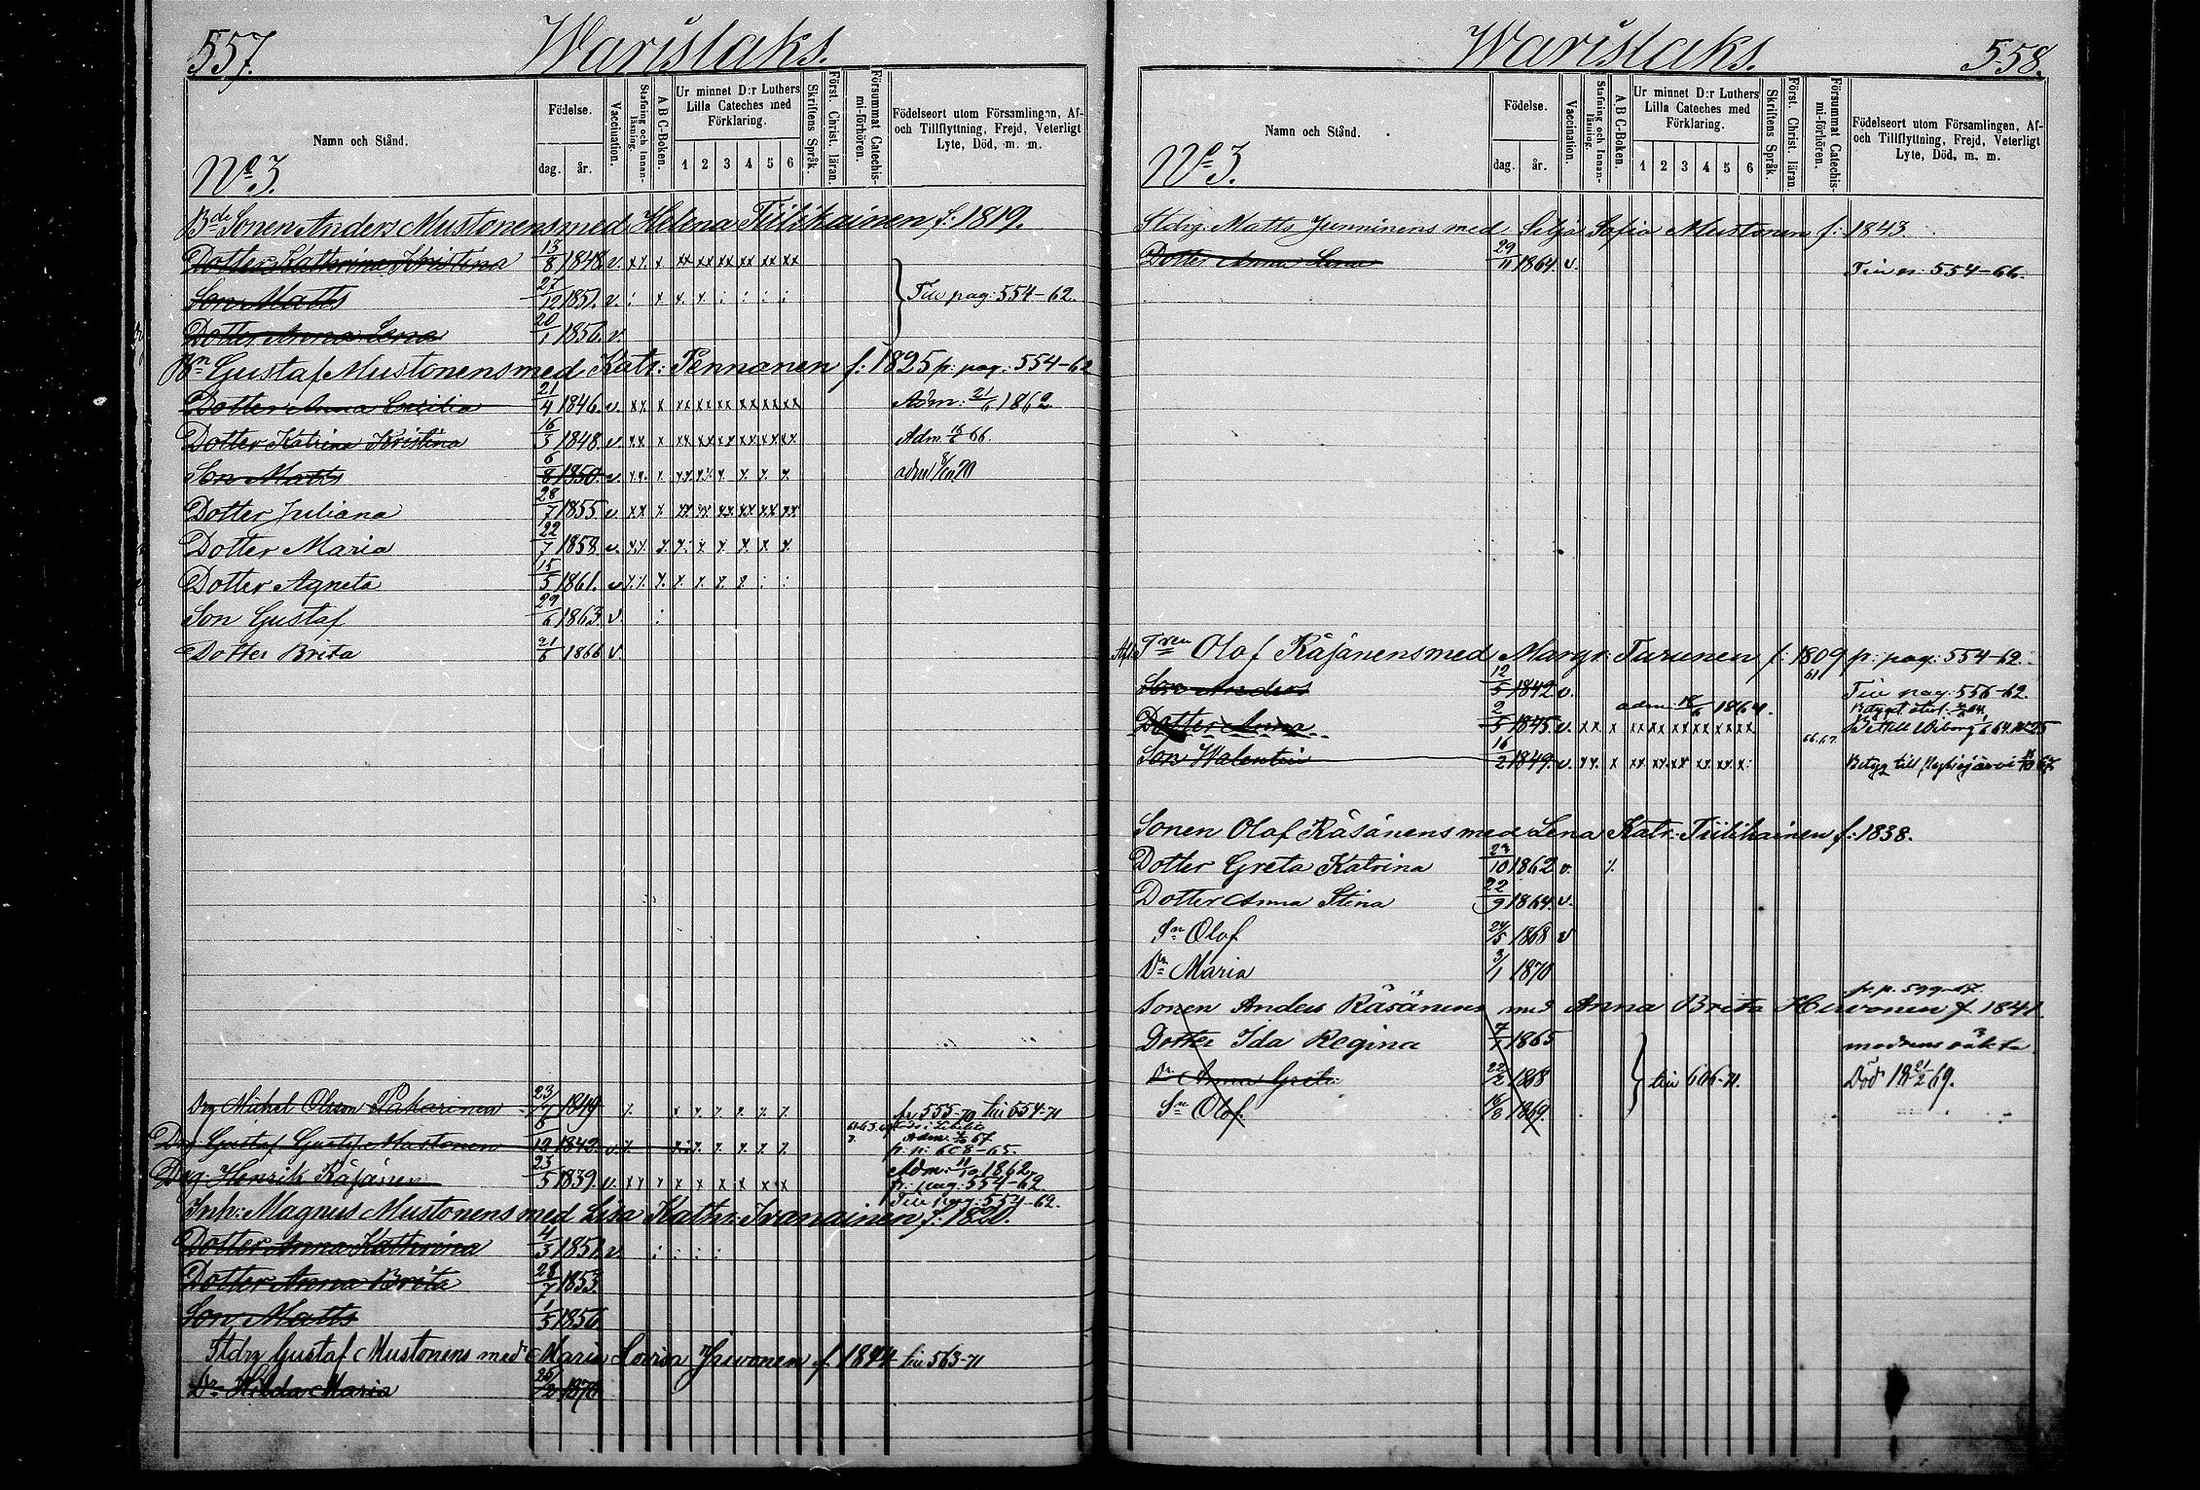 557. Waristaks.
Namn och Stånd.
Födelse.
dag. år.
Vaccination.
Stafning och Innanläsning.
A B C-Boken.
Ur minnet D:r Luthers Lilla Cateches med Förklaring.
1 2 3 4 5 6
Skriftens Språk.
Först. Christ. läran.
Försummat Catechismi-förhören.
Födelseort utom Församlingen, Af- och Tillflyttning, Frejd, Veterligt Lyte, Död, m. m.
No 3.
Bde Sonen Anders Mustonens med Helena Tiilikainen f: 1819.
Dotter Kathrina Kristina 13/8 1848. v. xx x xx xx xx xx xx xx
Son Matts 27/12 1851. v. : x x x : : : : } Tiu pag: 554-62.
Dotter Anna Lena 20/1 1856. v.
Bn Gustaf Mustonens med Katr: Pennanen f: 1825 fr: pag: 554-62
Dotter Anna Cecilia 21/4 1846. v. xx x xx xx xx xx xx xx Adm: 21/6 1862
Dotter Katrina Kristina 16/3 1848. v. xx x xx xx xx xx xx xx Adm. 66.
Son Matts 6/8 1850. v. x x x x x x x x adm 70
Dotter Juliana 28/7 1855 v xx x xx xx xx xx xx xx
Dotter Maria 22/7 1858. v. x x x x x x x x
Dotter Agneta 15/5 1861. v x x x x x x x : :
Son Gustaf 29/6 1863 v. :
Dotter Brita 21/6 1866 v.
Drg Michel Olsson Pakarinen 23/7 1849 x x x x x x x fr 555-70 tiu 554-71
Drg Gustaf Gustafs Mustonen 6/12 1842. v x x x x x x x Adm. 67.
fr. p: 608-65.
Drg. Henrik Räsänen 23/5 1839. v. xx x x x x x xx Adm: 11/10 1862
fr: pag: 554-62.
Tiu pag: 554-62.
Inh: Magnus Mustonens med Lisa Kathr: Ivanainen f: 1820.
Dotter Anna Kathrina 4/3 1851. v. : : : :
Dotter Anna Brita 28/7 1853.
Son Matts 1/5 1856
Stdrg Gustaf Mustonens med Maria Lovisa f 1844 tiu 563-71
Dr Hilda Maria 25/2 1870
Waristaks. 558.
Namn och Stånd.
Födelse.
dag. år.
Vaccination.
Stafning och Innanläsning.
A B C-Boken.
Ur minnet D:r Luthers Lilla Cateches med Förklaring.
1 2 3 4 5 6
Skriftens Språk.
Först. Christ. läran.
Försummat Catechismi-förhören.
Födelseort utom Församlingen, Af- och Tillflyttning, Frejd, Veterligt Lyte, Död, m. m.
No 3.
Stdrg. Matts Junninens med Silja Sofia Mustonen f: 1843.
Dotter Anna Lena 29/11 1864. v. Tiu 554-66.
Olof Räsänens med Margr: Turunen f: 1809 fr: pag: 554-62.
Son Anders 12/5 1842 v. 61 Tiu pag: 556-62.
Dotter Anna 2/5 1845. v. xx x xx xx xx xx xx xx adm. 1864.
Son Walentin 16/2 1849. v. xx x xx xx xx xx xx x: 66.67. Betyg till 67.
Sonen Olof Räsänens med Lena Katr: Tiilikainen f: 1838.
Dotter Greta Katrina 23/10 1862 v.
Dotter Anna Stina 22/9 1864. v.
Sn Olof 24/5 1868 v
Dr Maria 3/1 1870
Sonen Anders Räsänens med Anna Brita Hirvonen f. 1841.
Dotter Ida Regina 7/7 1865 modrens oäkta
Dr Anna Greta 22/2 1868 } tiu 606-71. Död 18 21/2 69.
Sn Olof 16/8 1869.